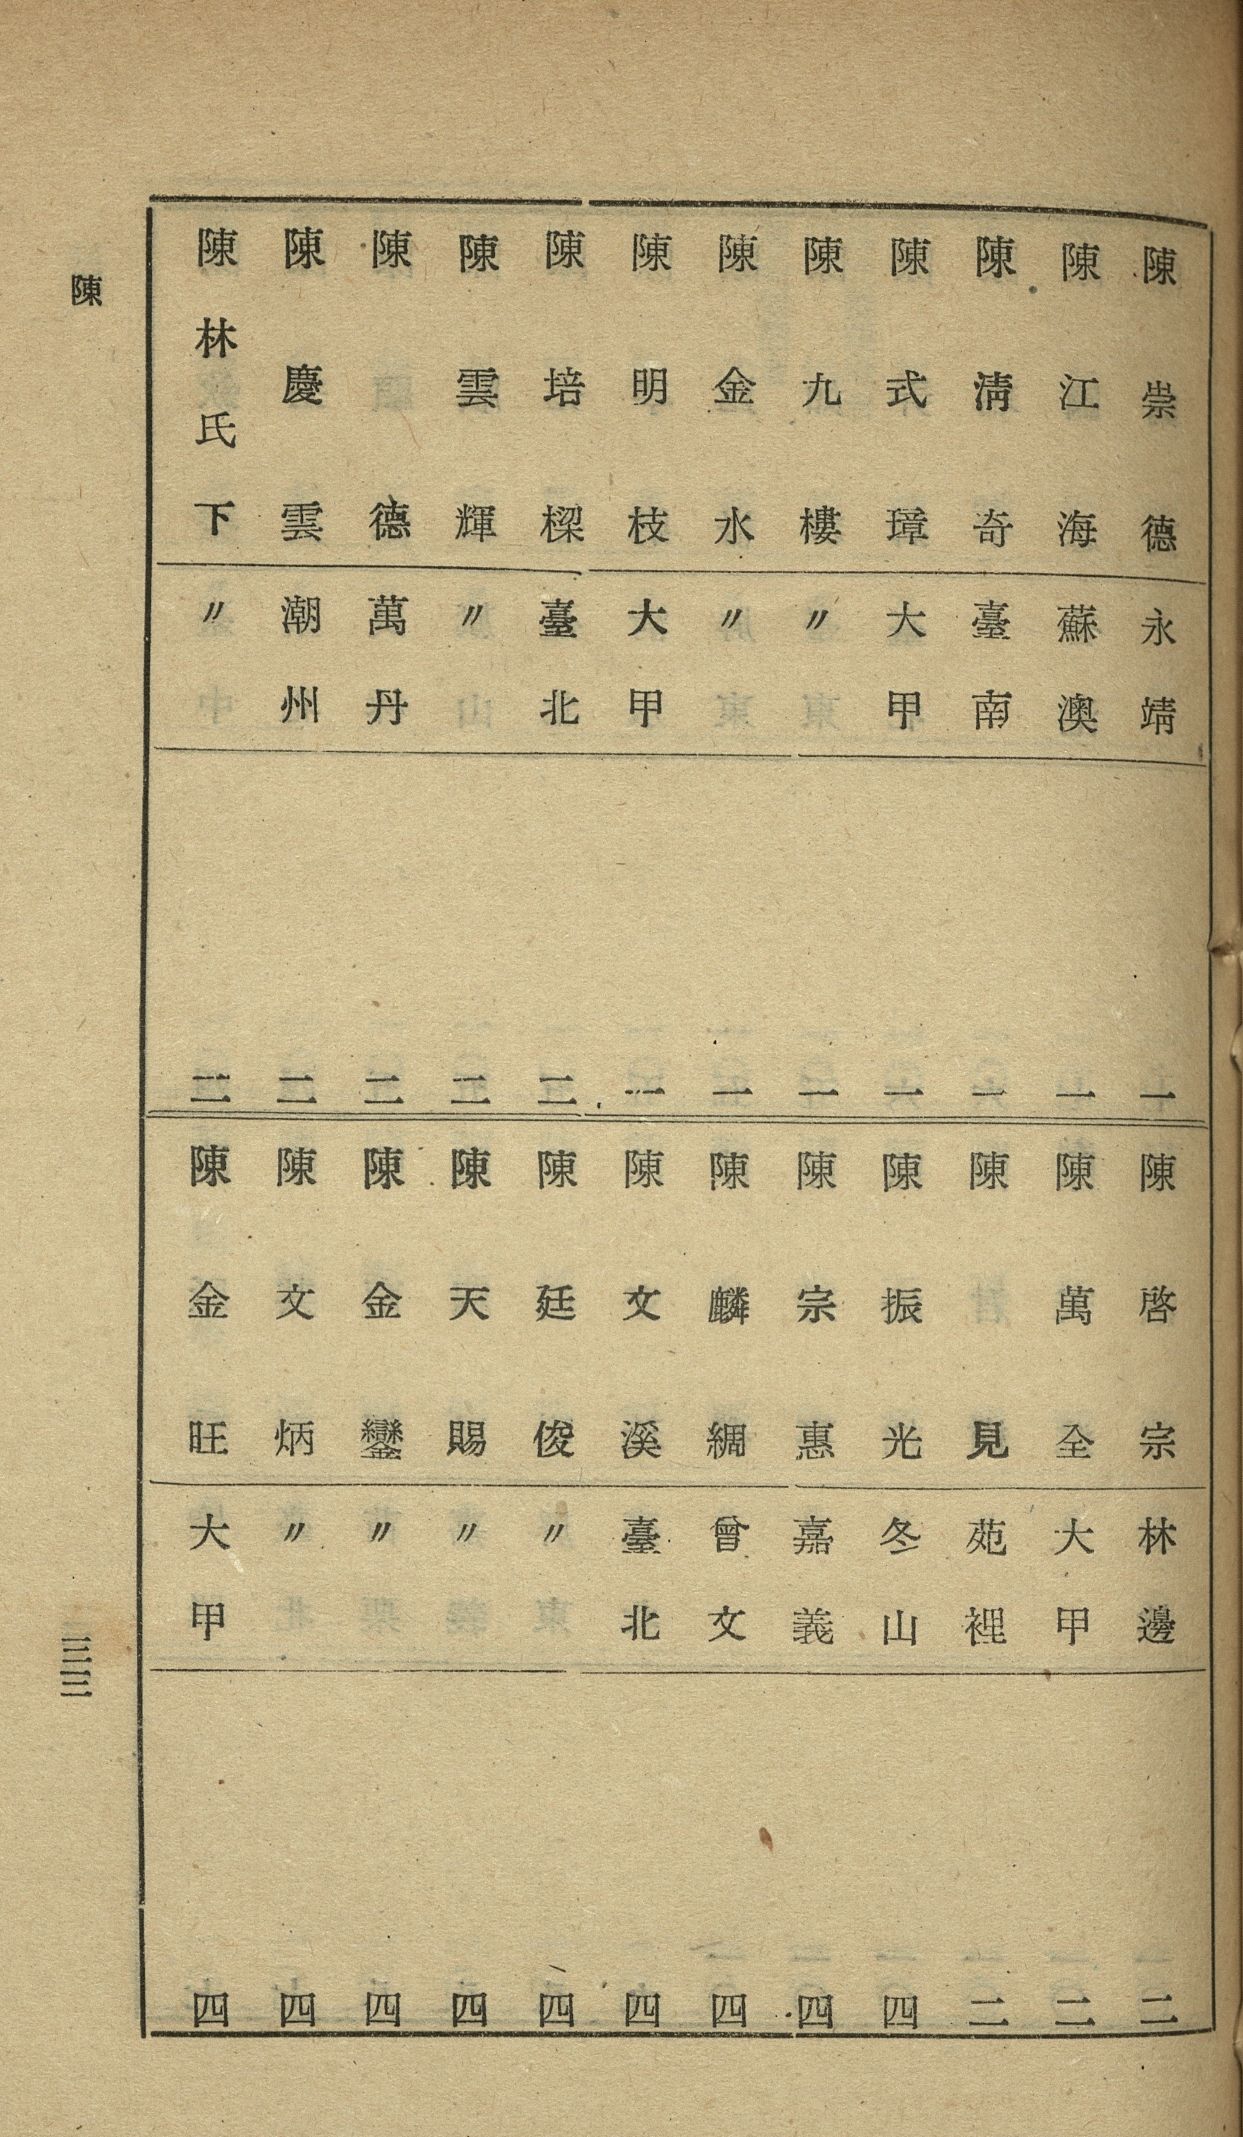 陳崇德 永靖 一
陳江海 蘇澳 一
陳清奇 臺南 一
陳式璋 大甲 一
陳九樓 〃 一
陳金水 〃 一
陳明枝 大甲 一
陳培樑 臺北 二
陳雲輝 〃 二
陳德 萬丹 二
陳慶雲 潮州 二
陳林氏下 〃 二
陳啓宗 林邊 二
陳萬全 大甲 二
陳見 苑裡 二
陳振光 冬山 四
陳宗惠 嘉義 四
陳麟綢 曾文 四
陳文溪 臺北 四
陳廷俊 〃 四
陳天賜 〃 四
陳金鑾 〃 四
陳文炳 〃 四
陳金旺 大甲 四
陳
三三